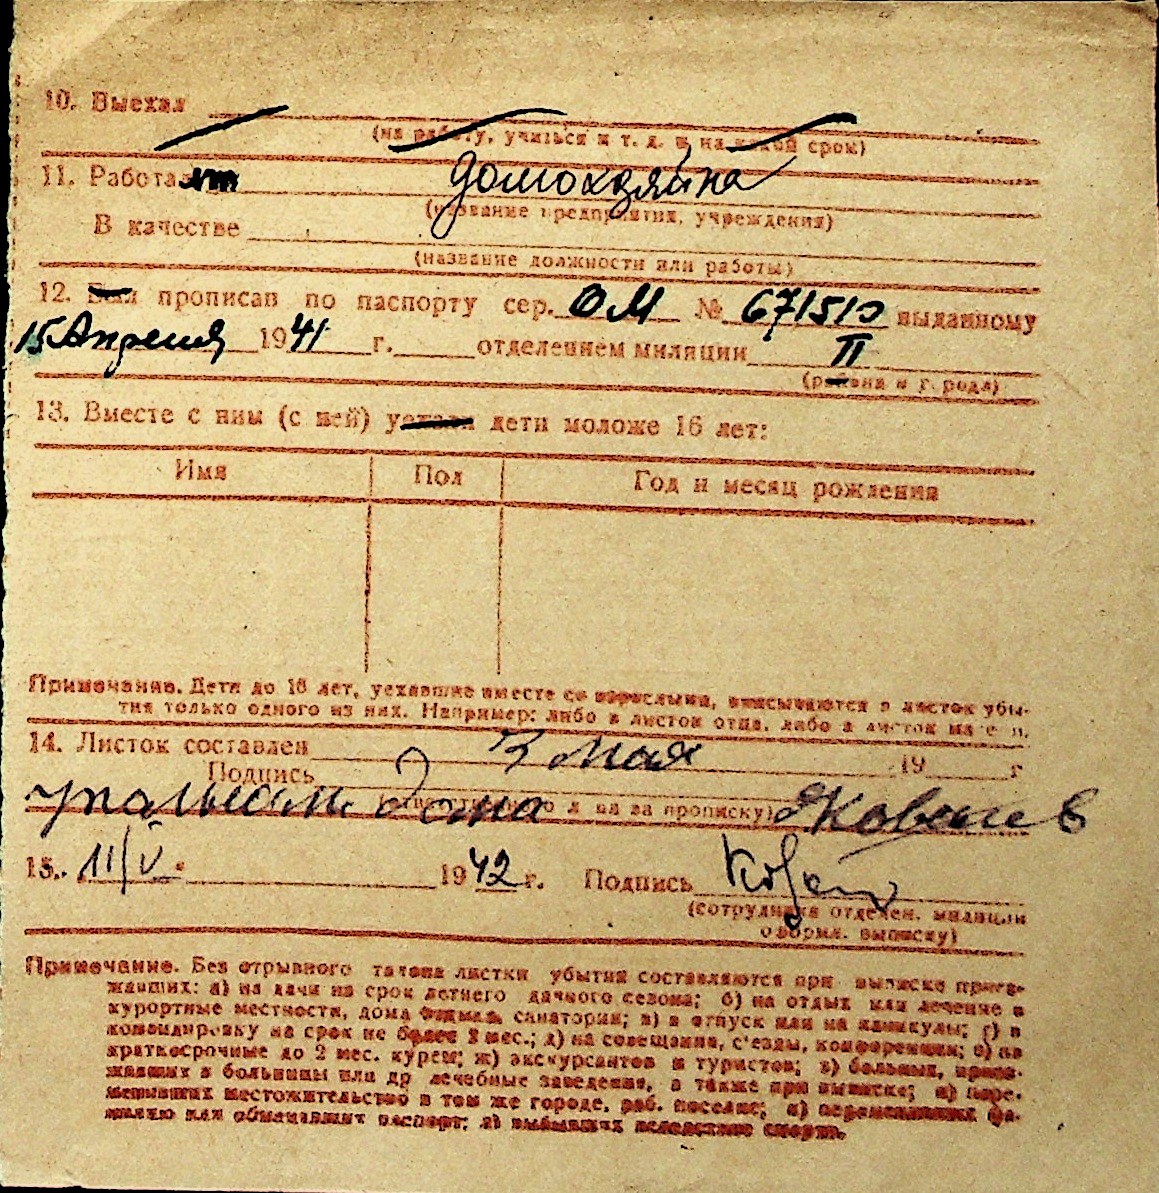 10. Выехал
(на работу, учиться и т. д. и на какой срок)
11. Работает домохозяйка
(название предприятия, учреждения)
В качестве
(название должности или работы)
12. Был прописан по паспорту сер. ОМ № 671510 выданному
15 Апреля 1941 г. отделением милиции II
(района и города)
13. Вместе с ним (с ней) уехали дети моложе 16 лет:
Имя Пол Год и месяц рождения
Примечание. Дети до 16 лет, уехавшие вместе со взрослыми, вписываются в листок убы-
тия только одного из них. Например: либо в листок отца, либо в листок матери.
14. Листок составлен 3 мая 19 г
Подпись
дома Яковлев
(ответственного лица за прописку)
15. 11/V 1942 г. Подпись
(сотрудника отделен. милиции
оформ. выписку)
Примечание. Без отрывного талона листки убытия составляются при выписке приез-
жавших: а) на дачи на срок летнего дачного сезона; б) на отдых или лечение в
курортные местности, дома отдыха, санатории; в) в отпуск или на каникулы; г) в
командировку на срок не более 2 мес.; д) на совещания, с'езды, конференции; е) на
краткосрочные до 2 мес. курсы; ж) экскурсантов и туристов; з) больных, приез-
жавших в больницы или др лечебные заведения, а также при выписке; и) пере-
менивших местожительство в том же городе, раб. поселке; к) переменивших фа-
милию или обменявших паспорт; л) выбывших вследствие смерти.